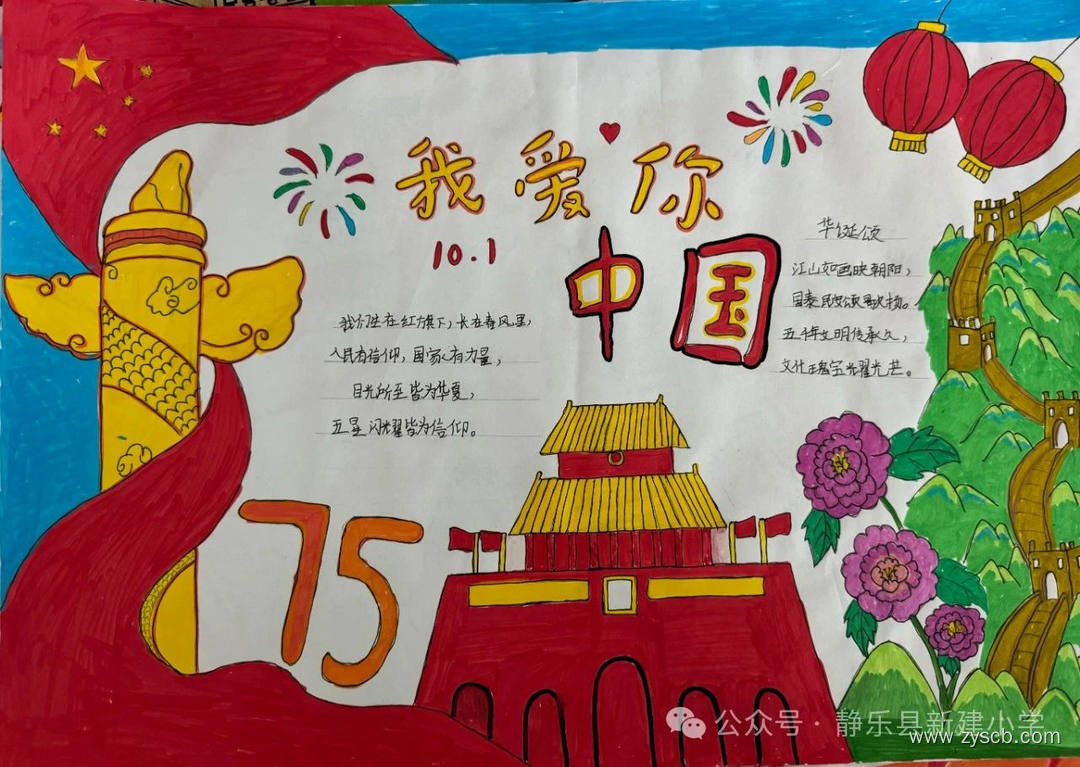 我爱你
10.1
中国
我们生在红旗下，长在春风里，
人民有信仰，国家有力量，
目光所至皆为华夏，
五星闪耀皆为信仰。
75
华诞颂
江山如画映朝阳，
国泰民安颂歌扬。
五千年文明传承久，
文化瑰宝光耀光芒。
公众号·静乐县新建小学
www.zyscb.com